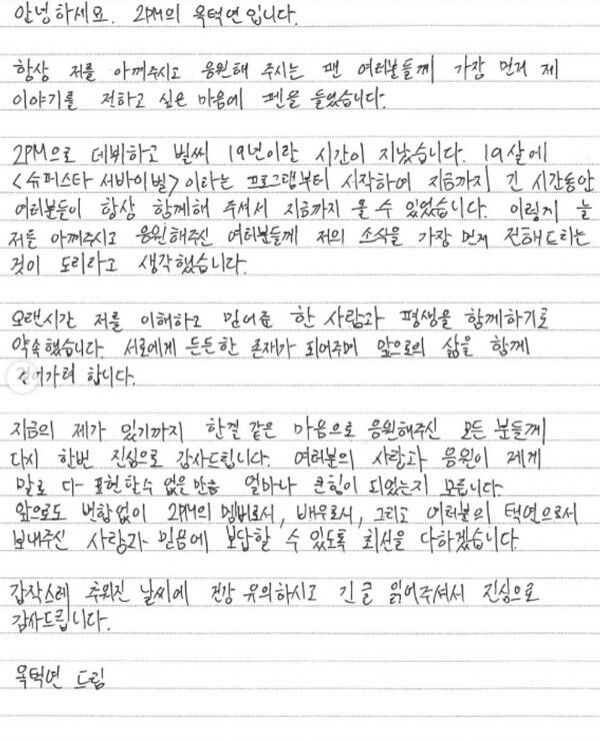 안녕하세요. 2PM의 옥택연입니다.
항상 저를 아껴주시고 응원해 주시는 팬 여러분들께 가장 먼저 제
이야기를 전하고 싶은 마음에 펜을 들었습니다.
2PM으로 데뷔하고 벌써 19년이란 시간이 지났습니다. 19살에
<슈퍼스타 서바이벌>이라는 프로그램부터 시작하여 지금까지 긴 시간동안
여러분들이 항상 함께해 주셔서 지금까지 올 수 있었습니다. 이렇게 늘
저를 아껴주시고 응원해주신 여러분들께 저의 소식을 가장 먼저 전해드리는
것이 도리라고 생각했습니다.
오랜시간 저를 이해하고 믿어준 한 사람과 평생을 함께하기로
약속했습니다. 서로에게 든든한 존재가 되어주며 앞으로의 삶을 함께
걸어가려 합니다.
지금의 제가 있기까지 한결 같은 마음으로 응원해주신 모든 분들께
다시 한번 진심으로 감사드립니다. 여러분의 사랑과 응원이 제게
말로 다 표현할수 없을 만큼 얼마나 큰힘이 되었는지 모릅니다.
앞으로도 변함없이 2PM의 멤버로서, 배우로서, 그리고 여러분의 택연으로서
보내주신 사랑과 믿음에 보답할 수 있도록 최선을 다하겠습니다.
갑작스레 추워진 날씨에 건강 유의하시고 긴 글 읽어주셔서 진심으로
감사드립니다.
옥택연 드림